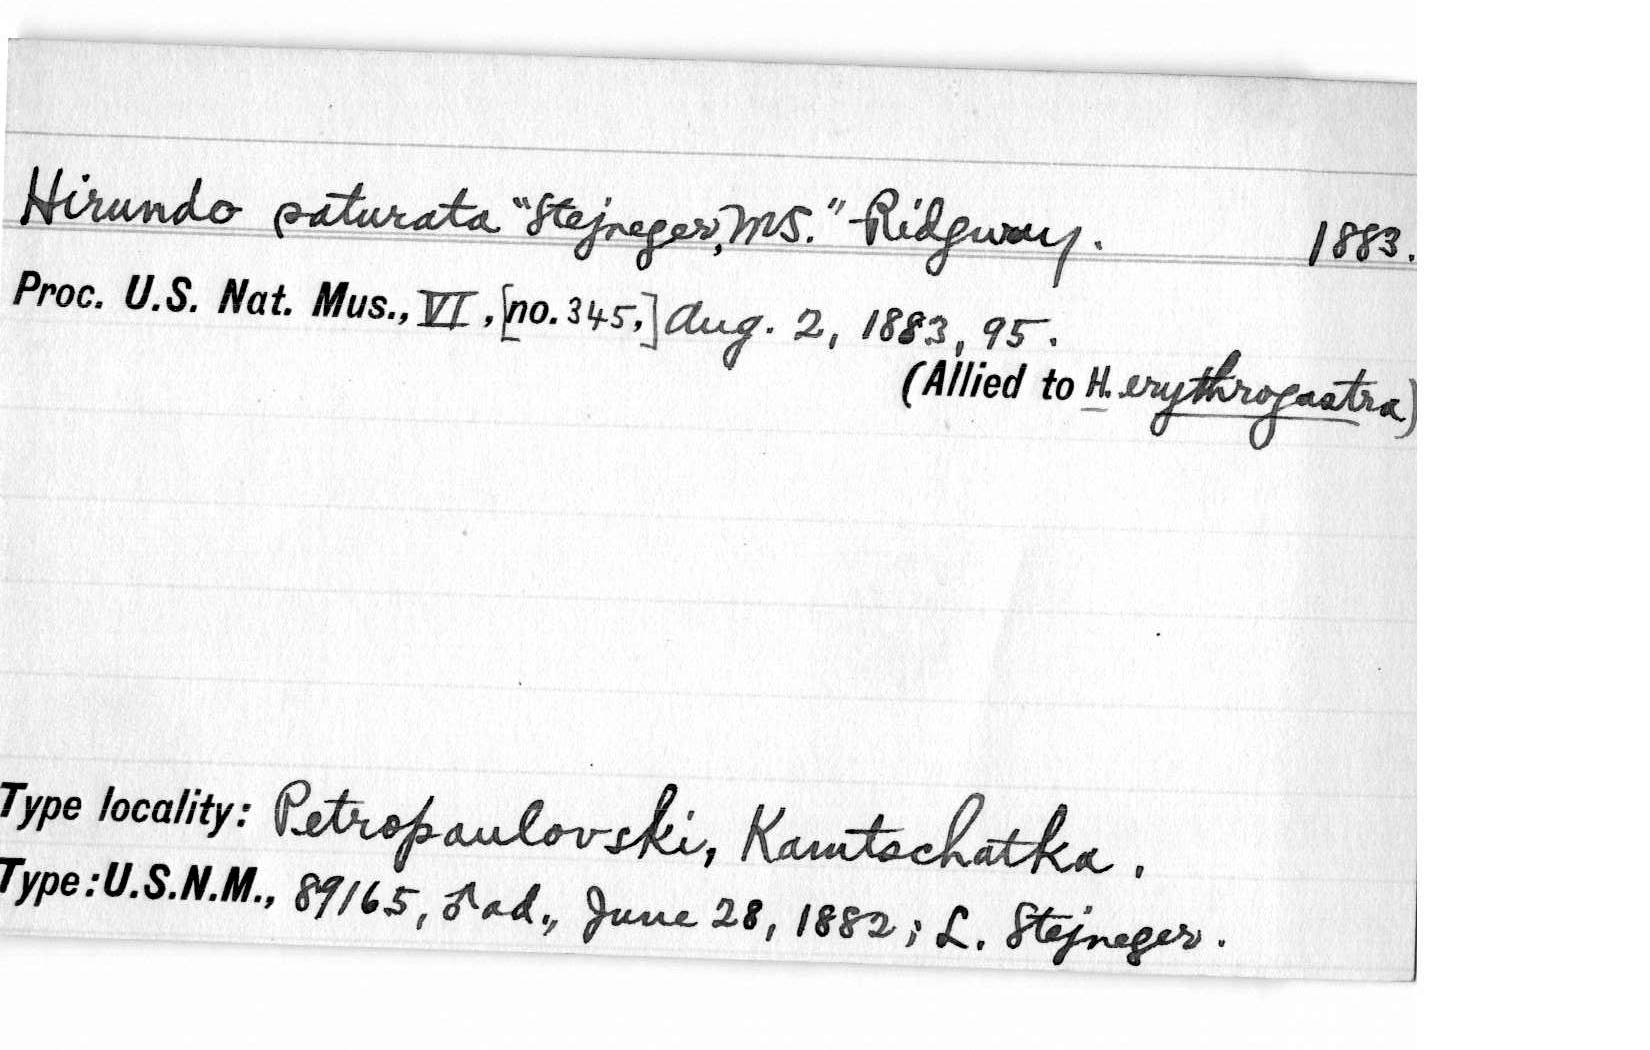 Hirundo saturata "Stejneger, MS." Ridgway. 1883.
Proc. U.S. Nat. Mus., VI, [no. 345,] Aug. 2, 1883, 95.
(Allied to H. erythrogastra)
Type locality: Petropaulovski, Kamtschatka.
Type: U.S.N.M., 89165, ♂ ad., June 28, 1882; L. Stejneger.